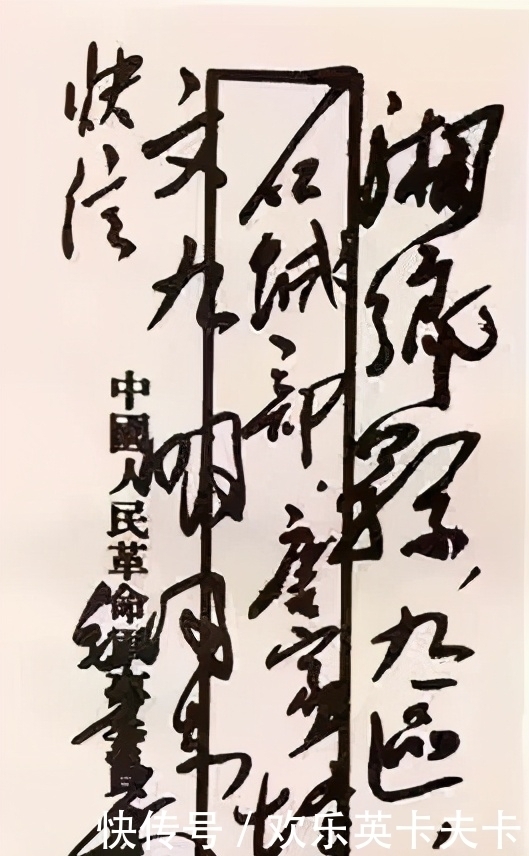 湘鄉縣，九區
石城部，唐家
文九明同志
快信
中國人民革命軍事委員會
快传号/欢乐英卡夫卡